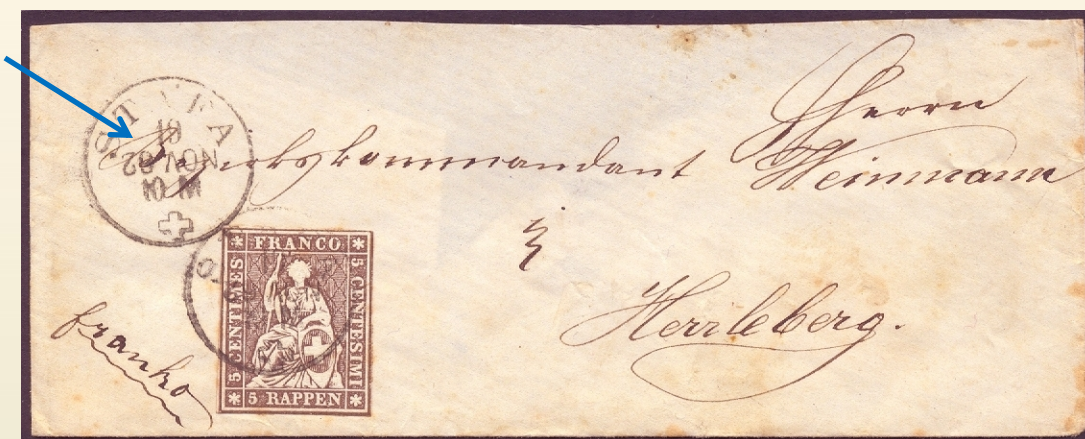 NOV
Herrn
Bezirkskommandant Weinmann
Herrleberg.
franko
FRANCO
5 CENTIMES
5 CENTESIMI
5 RAPPEN